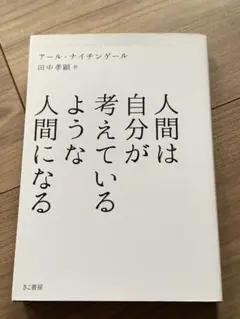 アール・ナイチンゲール
田中孝顕 訳
人間は
自分が
考えている
ような
人間になる
きこ書房